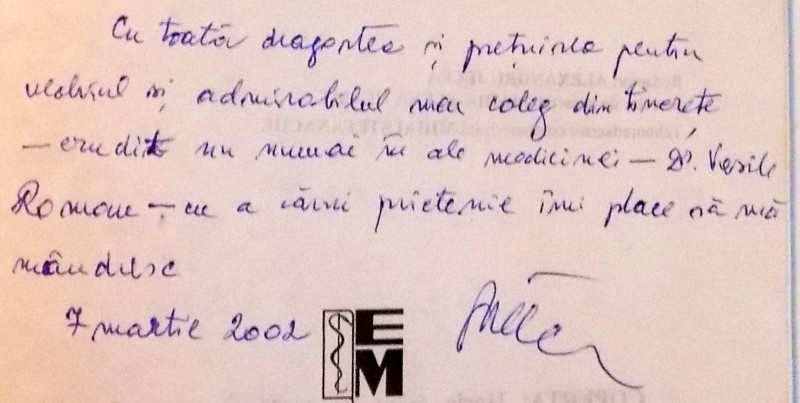 Cu toată dragostea și prețuirea pentru
vechiul și admirabilul meu coleg din tinerețe
— erudit nu numai în ale medicinei — Dr. Vasile
Roman — cu a cărui prietenie îmi place să mă
mândresc
7 martie 2002
EM